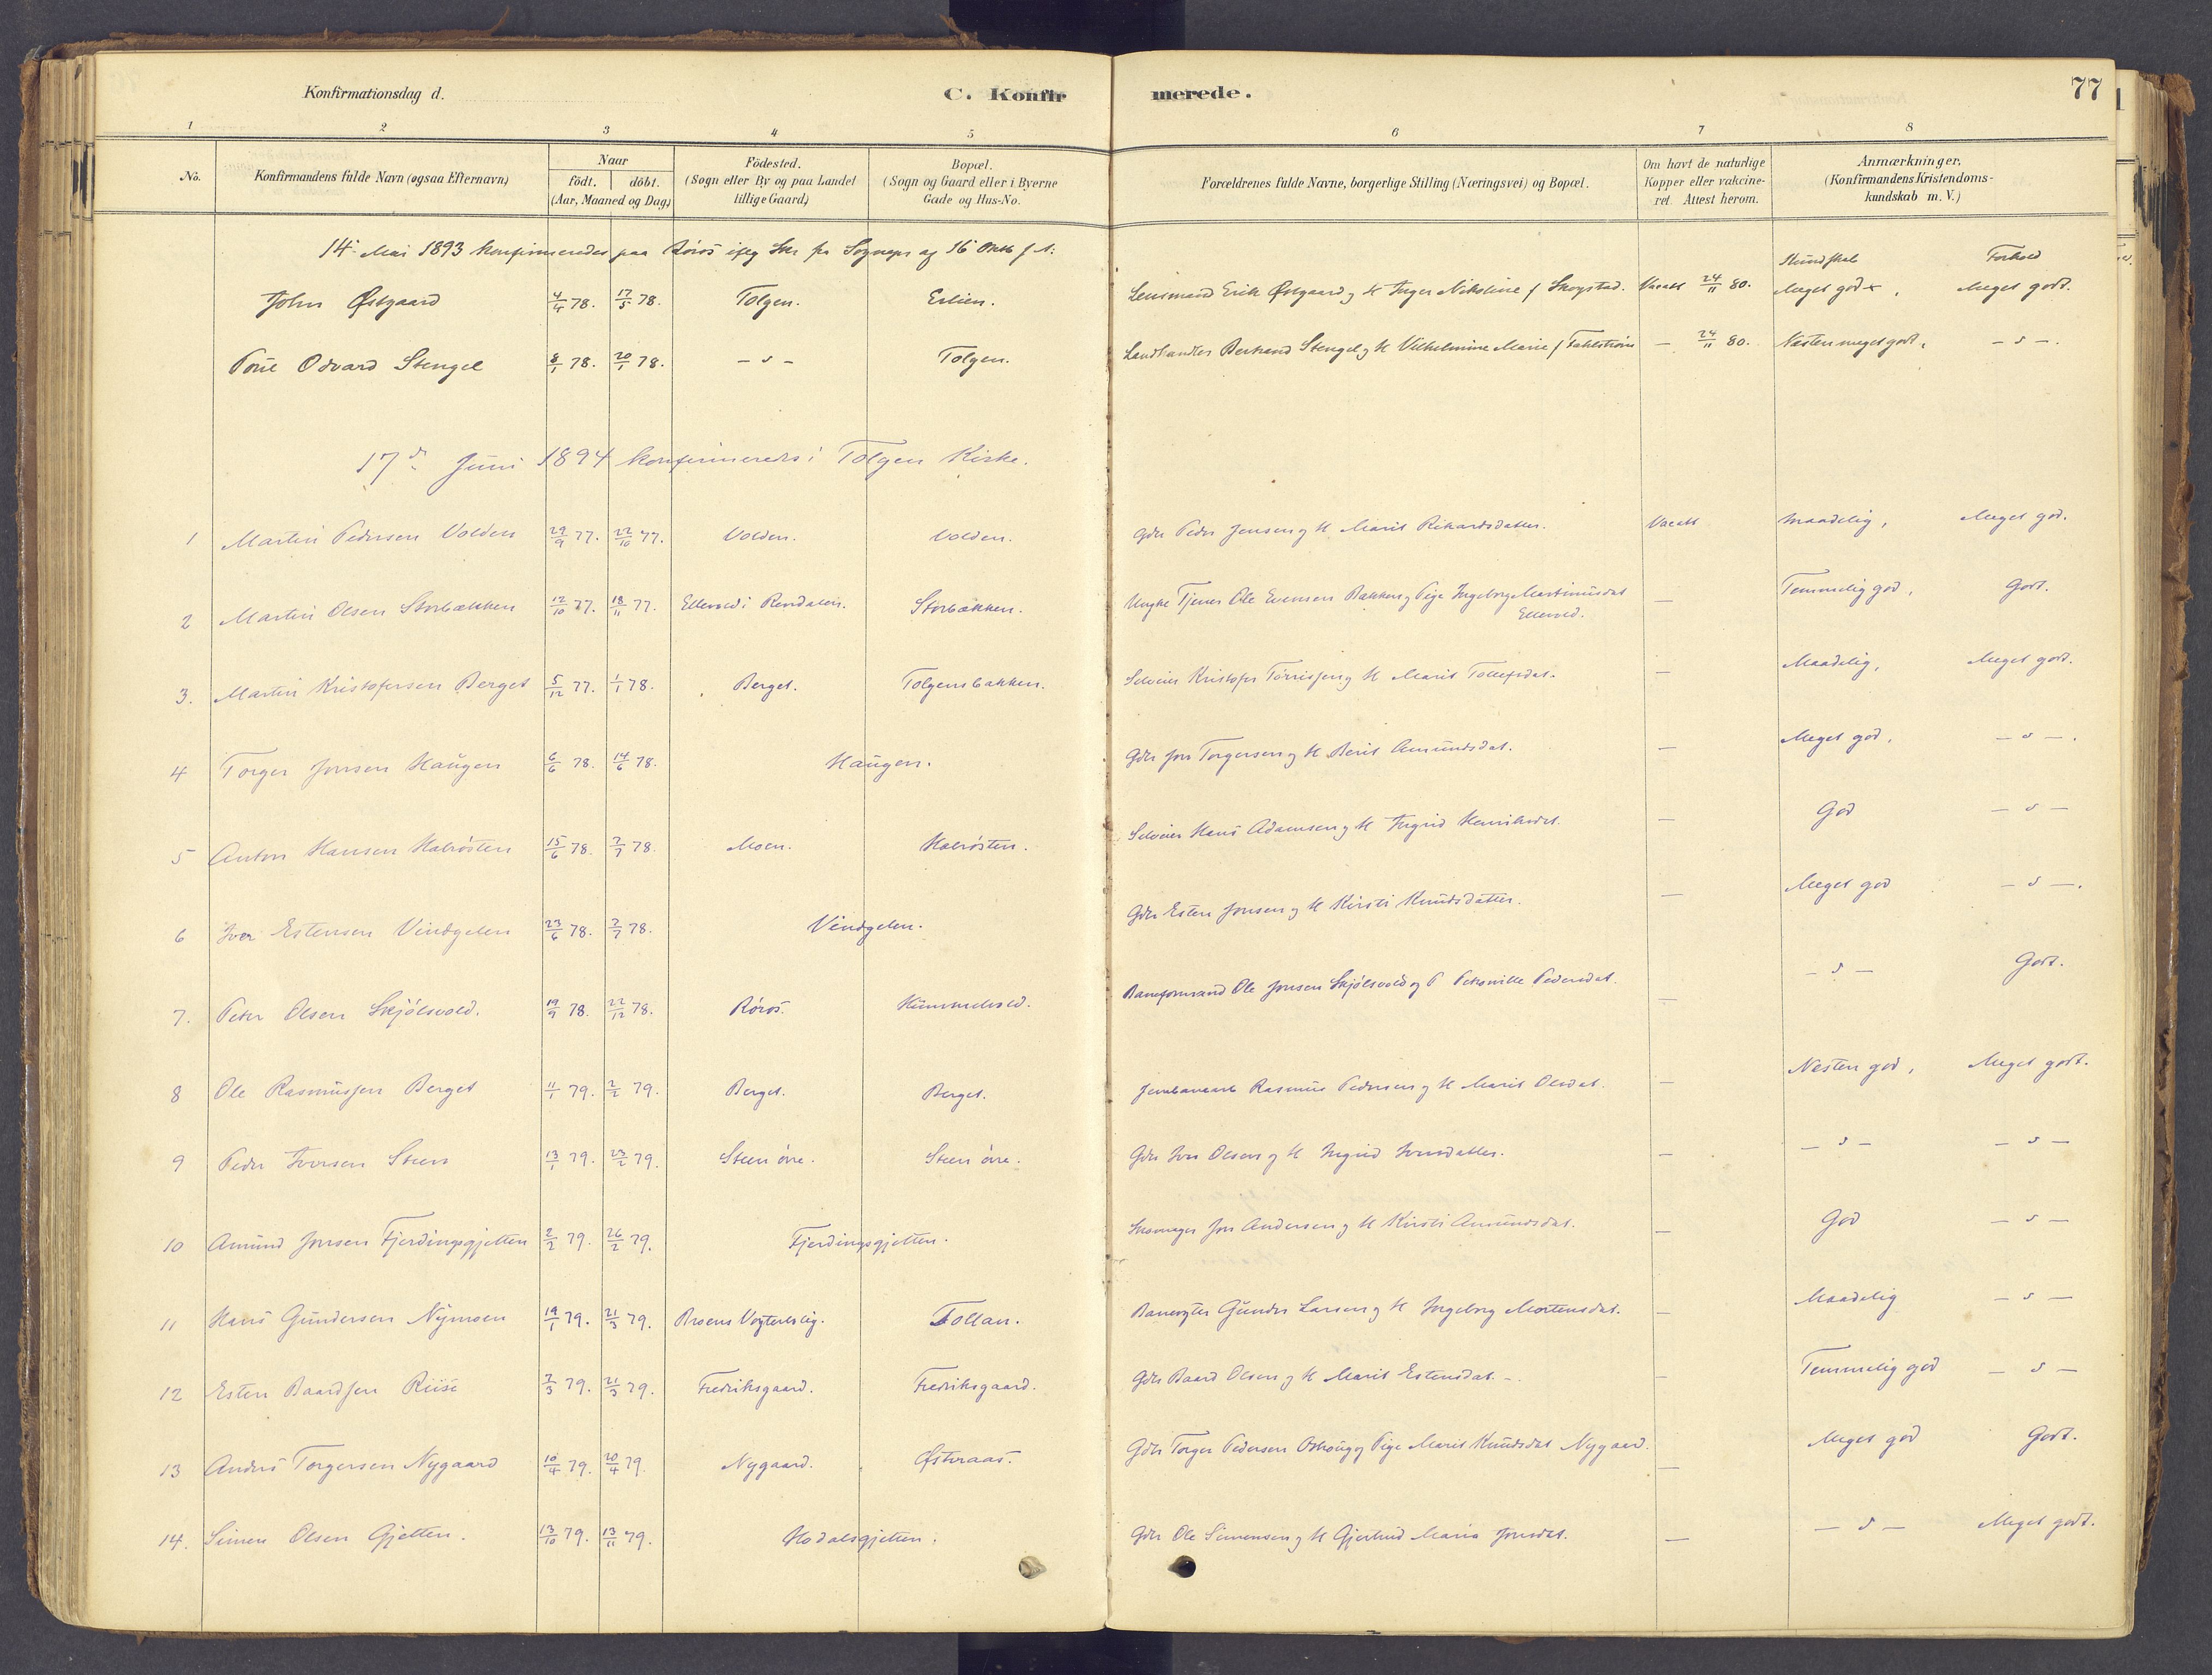 Konfirmationsdag d. C. Konfirmerede. 77
1 2 3 4 5 6 7 8
No. Konfirmandens fulde Navn (ogsaa Efternavn) Naar födt. döbt. (Aar, Maaned og Dag) Födested. (Sogn eller By og paa Landet tillige Gaard) Bopæl. (Sogn og Gaard eller i Byerne Gade og Hus-No. Forældrenes fulde Navne, borgerlige Stilling (Næringsvei) og Bopæl. Om havt de naturlige Kopper eller vakcineret. Attest herom. Anmærkninger. (Konfirmandens Kristendomskundskab m.V.)
14 Mai 1893 konfirmeredes paa Röros iflg Skr fra Sognepr af 16 Oktb f A: Kundskab Forhold
John Østgaard 4/4 78. 17/5 78. Tolgen. Erlien. Lensmand Erik Østgaard og H Inger Nikoline f Skogstad. Vacatt 24/11 80. Meget god. Meget godt.
Odvard Stengel 8/1 78. 20/1 78. - s - Tolgen. Landhandler Bertrand Stengel og H Vilhelmine Marie f Fahlström - 24/11 80. Næsten meget godt. - s -.
17de Juni 1894 konfirmeredes i Tolgen Kirke.
1 Martin Pedersen Volden 29/9 77. 22/10 77. Volden. Volden. Gdr Peder Jensen og H Marit Rikardsdatter. Vacatt Maadelig, Meget god.
2 Martin Olsen Storbækken 12/10 77. 18/11 77. Ellevold i Rendalen. Storbækken. Ungkr Tjener Ole Evensen Bakken og Pige Ingeborg Martinusdat Ellevold. - Temmelig god, Godt.
3. Martin Kristofersen Berget 5/12 77. 1/1 78. Berget. Tolgensbakken. Selveier Kristofer Törrisen og H Marit Tollefsdat. - Maadelig, Meget godt.
4 Torger Jonsen Haugen 6/6 78. 14/6 78. Haugen. Gdr Jon Torgersen og H Berit Amundsdat. - Meget god. - s -.
5 Anton Hansen Kalrösten 15/6 78. 7/7 78. Moen. Kalrösten. Selveier Hans Adamsen og H Ingrid Henriksdat. - God - s -
6 Iver Estensen Vindgelen 23/6 78. 7/7 78. Vingelen. Gdr Esten Jonsen og H Kirsti Knudsdatter. - Meget god - s -.
7. Peter Olsen Skjölsvold. 19/9 78. 22/12 78. Röros. Hummelvold. Baneformand Ole Jonsen Skjölsvold og P Petronille Pedersdat. - - s - Godt.
8 Ole Rasmussen Berget 11/1 79. 2/2 79. Berget. Berget. Jernbanearb Rasmus Pedersen og H Marit Olsdat. - Nesten god, Meget godt.
9 Peder Iversen Steen 13/1 79. 23/2 79. Steen övre. Steen övre. Gdr Iver Olsen og H Ingrid Iversdatter. - - s - - s -
10 Amund Jonsen Fjerdingsgjelten 2/2 79. 26/2 79. Fjerdingsgjelten. Skomager Jon Andersen og H Kirsti Amundsdat. - God - s -
11 Hans Gundersen Nymoen 19/1 79. 21/3 79. Broens Vogterbolig. Tollan. Banevogter Gunder Larsen og H Ingeborg Mortensdat. - Maadelig - s -
12 Esten Baardsen Riise 7/3 79. 21/3 79. Fredriksgaard. Fredriksgaard. Gdr Baard Olsen og H Marit Estensdat. - Temmelig god - s -
13 Anders Torgersen Nygaard 10/4 79. 20/4 79. Nygaard. Østeraas. Gdr Torger Pedersen og Pige Marit Knudsdat Nygaard. - Meget god Godt.
14. Simen Olsen Gjelten. 13/10 79. 13/11 79. Hodalsgjelten. Gdr Ole Simensen og H Gjertrud Maria Jonsdat. - - s - Meget godt.